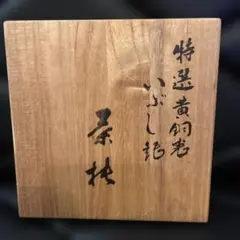 特選黄銅光
いぶし銀
茶托